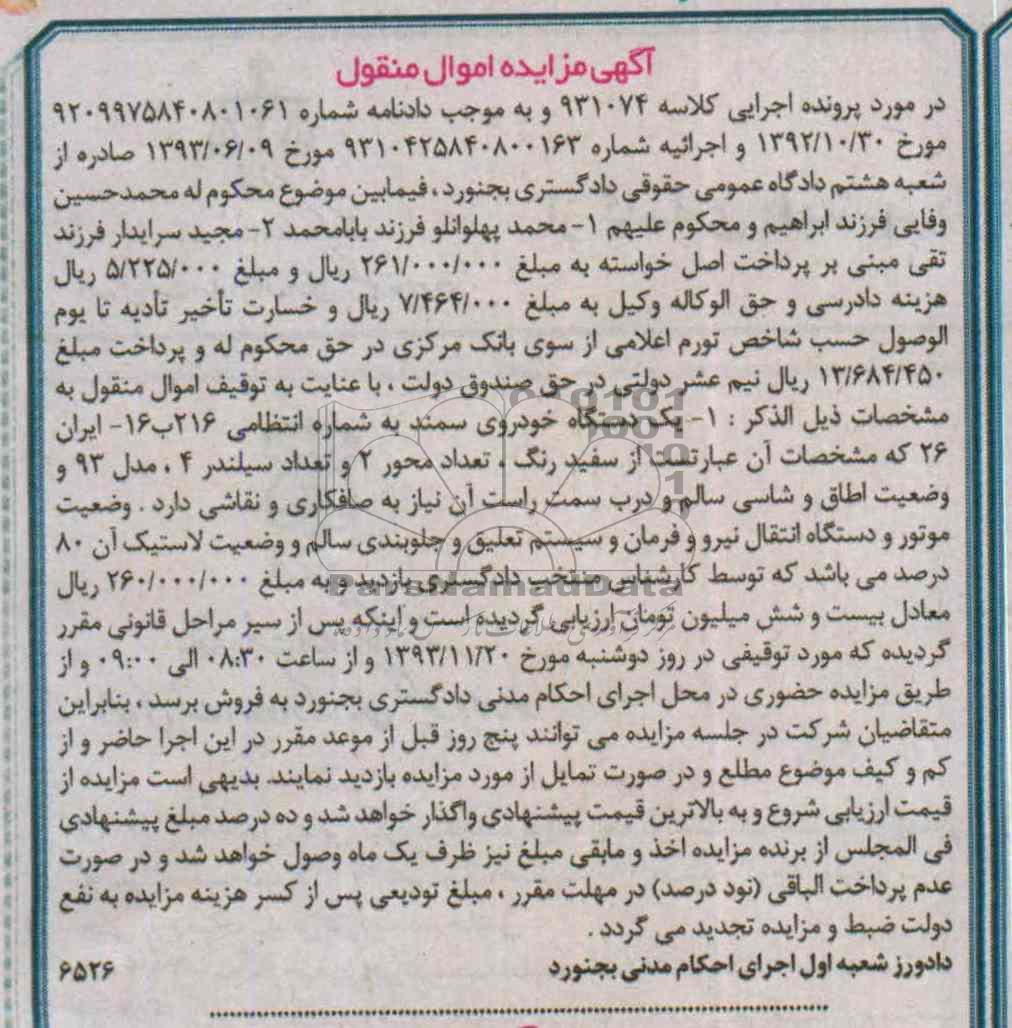 آگهی مزایده اموال منقول
در مورد پرونده اجرایی کلاسه ۹۳۱۰۷۴ و به موجب دادنامه شماره ۹۲۰۹۹۷۵۸۴۰۸۰۱۰۶۱
مورخ ۱۳۹۲/۱۰/۳۰ و اجرائیه شماره ۹۳۱۰۴۲۵۸۴۰۸۰۰۱۶۳ مورخ ۱۳۹۳/۰۶/۰۹ صادره از
شعبه هشتم دادگاه عمومی حقوقی دادگستری بجنورد ، فیمابین موضوع محکوم له محمدحسین
وفایی فرزند ابراهیم و محکوم علیهم ۱- محمد پهلوانلو فرزند بابامحمد ۲- مجید سرایدار فرزند
تقی مبنی بر پرداخت اصل خواسته به مبلغ ۲۶۱/۰۰۰/۰۰۰ ریال و مبلغ ۵/۲۲۵/۰۰۰ ریال
هزینه دادرسی و حق الوکاله وکیل به مبلغ ۷/۴۶۴/۰۰۰ ریال و خسارت تأخیر تأدیه تا یوم
الوصول حسب شاخص تورم اعلامی از سوی بانک مرکزی در حق محکوم له و پرداخت مبلغ
۱۳/۶۸۴/۴۵۰ ریال نیم عشر دولتی در حق صندوق دولت ، با عنایت به توقیف اموال منقول به
مشخصات ذیل الذکر : ۱- یک دستگاه خودروی سمند به شماره انتظامی ۲۱۶ب۱۶- ایران
۲۶ که مشخصات آن عبارتست از سفید رنگ ، تعداد محور ۲ و تعداد سیلندر ۴ ، مدل ۹۳ و
وضعیت اطاق و شاسی سالم و درب سمت راست آن نیاز به صافکاری و نقاشی دارد . وضعیت
موتور و دستگاه انتقال نیرو و فرمان و سیستم تعلیق و جلوبندی سالم و وضعیت لاستیک آن ۸۰
درصد می باشد که توسط کارشناس منتخب دادگستری بازدید و به مبلغ ۲۶۰/۰۰۰/۰۰۰ ریال
معادل بیست و شش میلیون تومان ارزیابی گردیده است و اینکه پس از سیر مراحل قانونی مقرر
گردیده که مورد توقیفی در روز دوشنبه مورخ ۱۳۹۳/۱۱/۲۰ و از ساعت ۰۸:۳۰ الی ۰۹:۰۰ و از
طریق مزایده حضوری در محل اجرای احکام مدنی دادگستری بجنورد به فروش برسد ، بنابراین
متقاضیان شرکت در جلسه مزایده می توانند پنج روز قبل از موعد مقرر در این اجرا حاضر و از
کم و کیف موضوع مطلع و در صورت تمایل از مورد مزایده بازدید نمایند. بدیهی است مزایده از
قیمت ارزیابی شروع و به بالاترین قیمت پیشنهادی واگذار خواهد شد و ده درصد مبلغ پیشنهادی
فی المجلس از برنده مزایده اخذ و مابقی مبلغ نیز ظرف یک ماه وصول خواهد شد و در صورت
عدم پرداخت الباقی (نود درصد) در مهلت مقرر ، مبلغ تودیعی پس از کسر هزینه مزایده به نفع
دولت ضبط و مزایده تجدید می گردد .
دادورز شعبه اول اجرای احکام مدنی بجنورد ۶۵۲۶
ParsNamadData